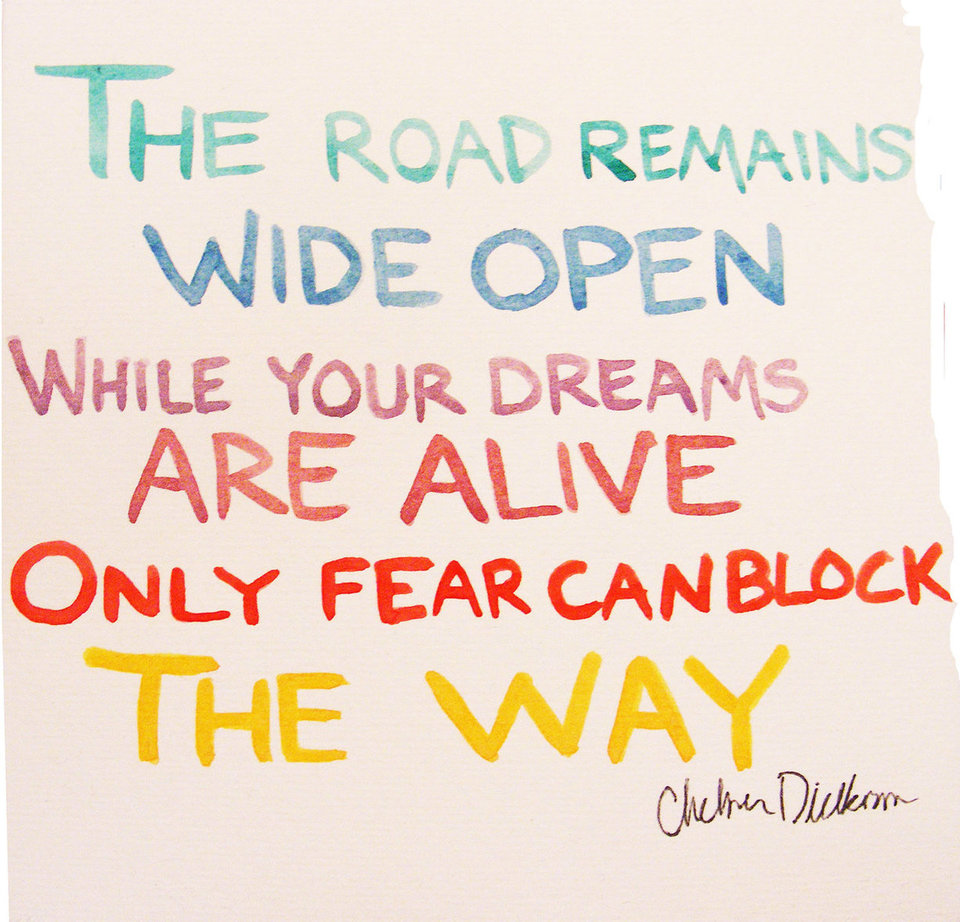 THE ROAD REMAINS
WIDE OPEN
WHILE YOUR DREAMS
ARE ALIVE
ONLY FEAR CAN BLOCK
THE WAY
Chelsea Dickerson